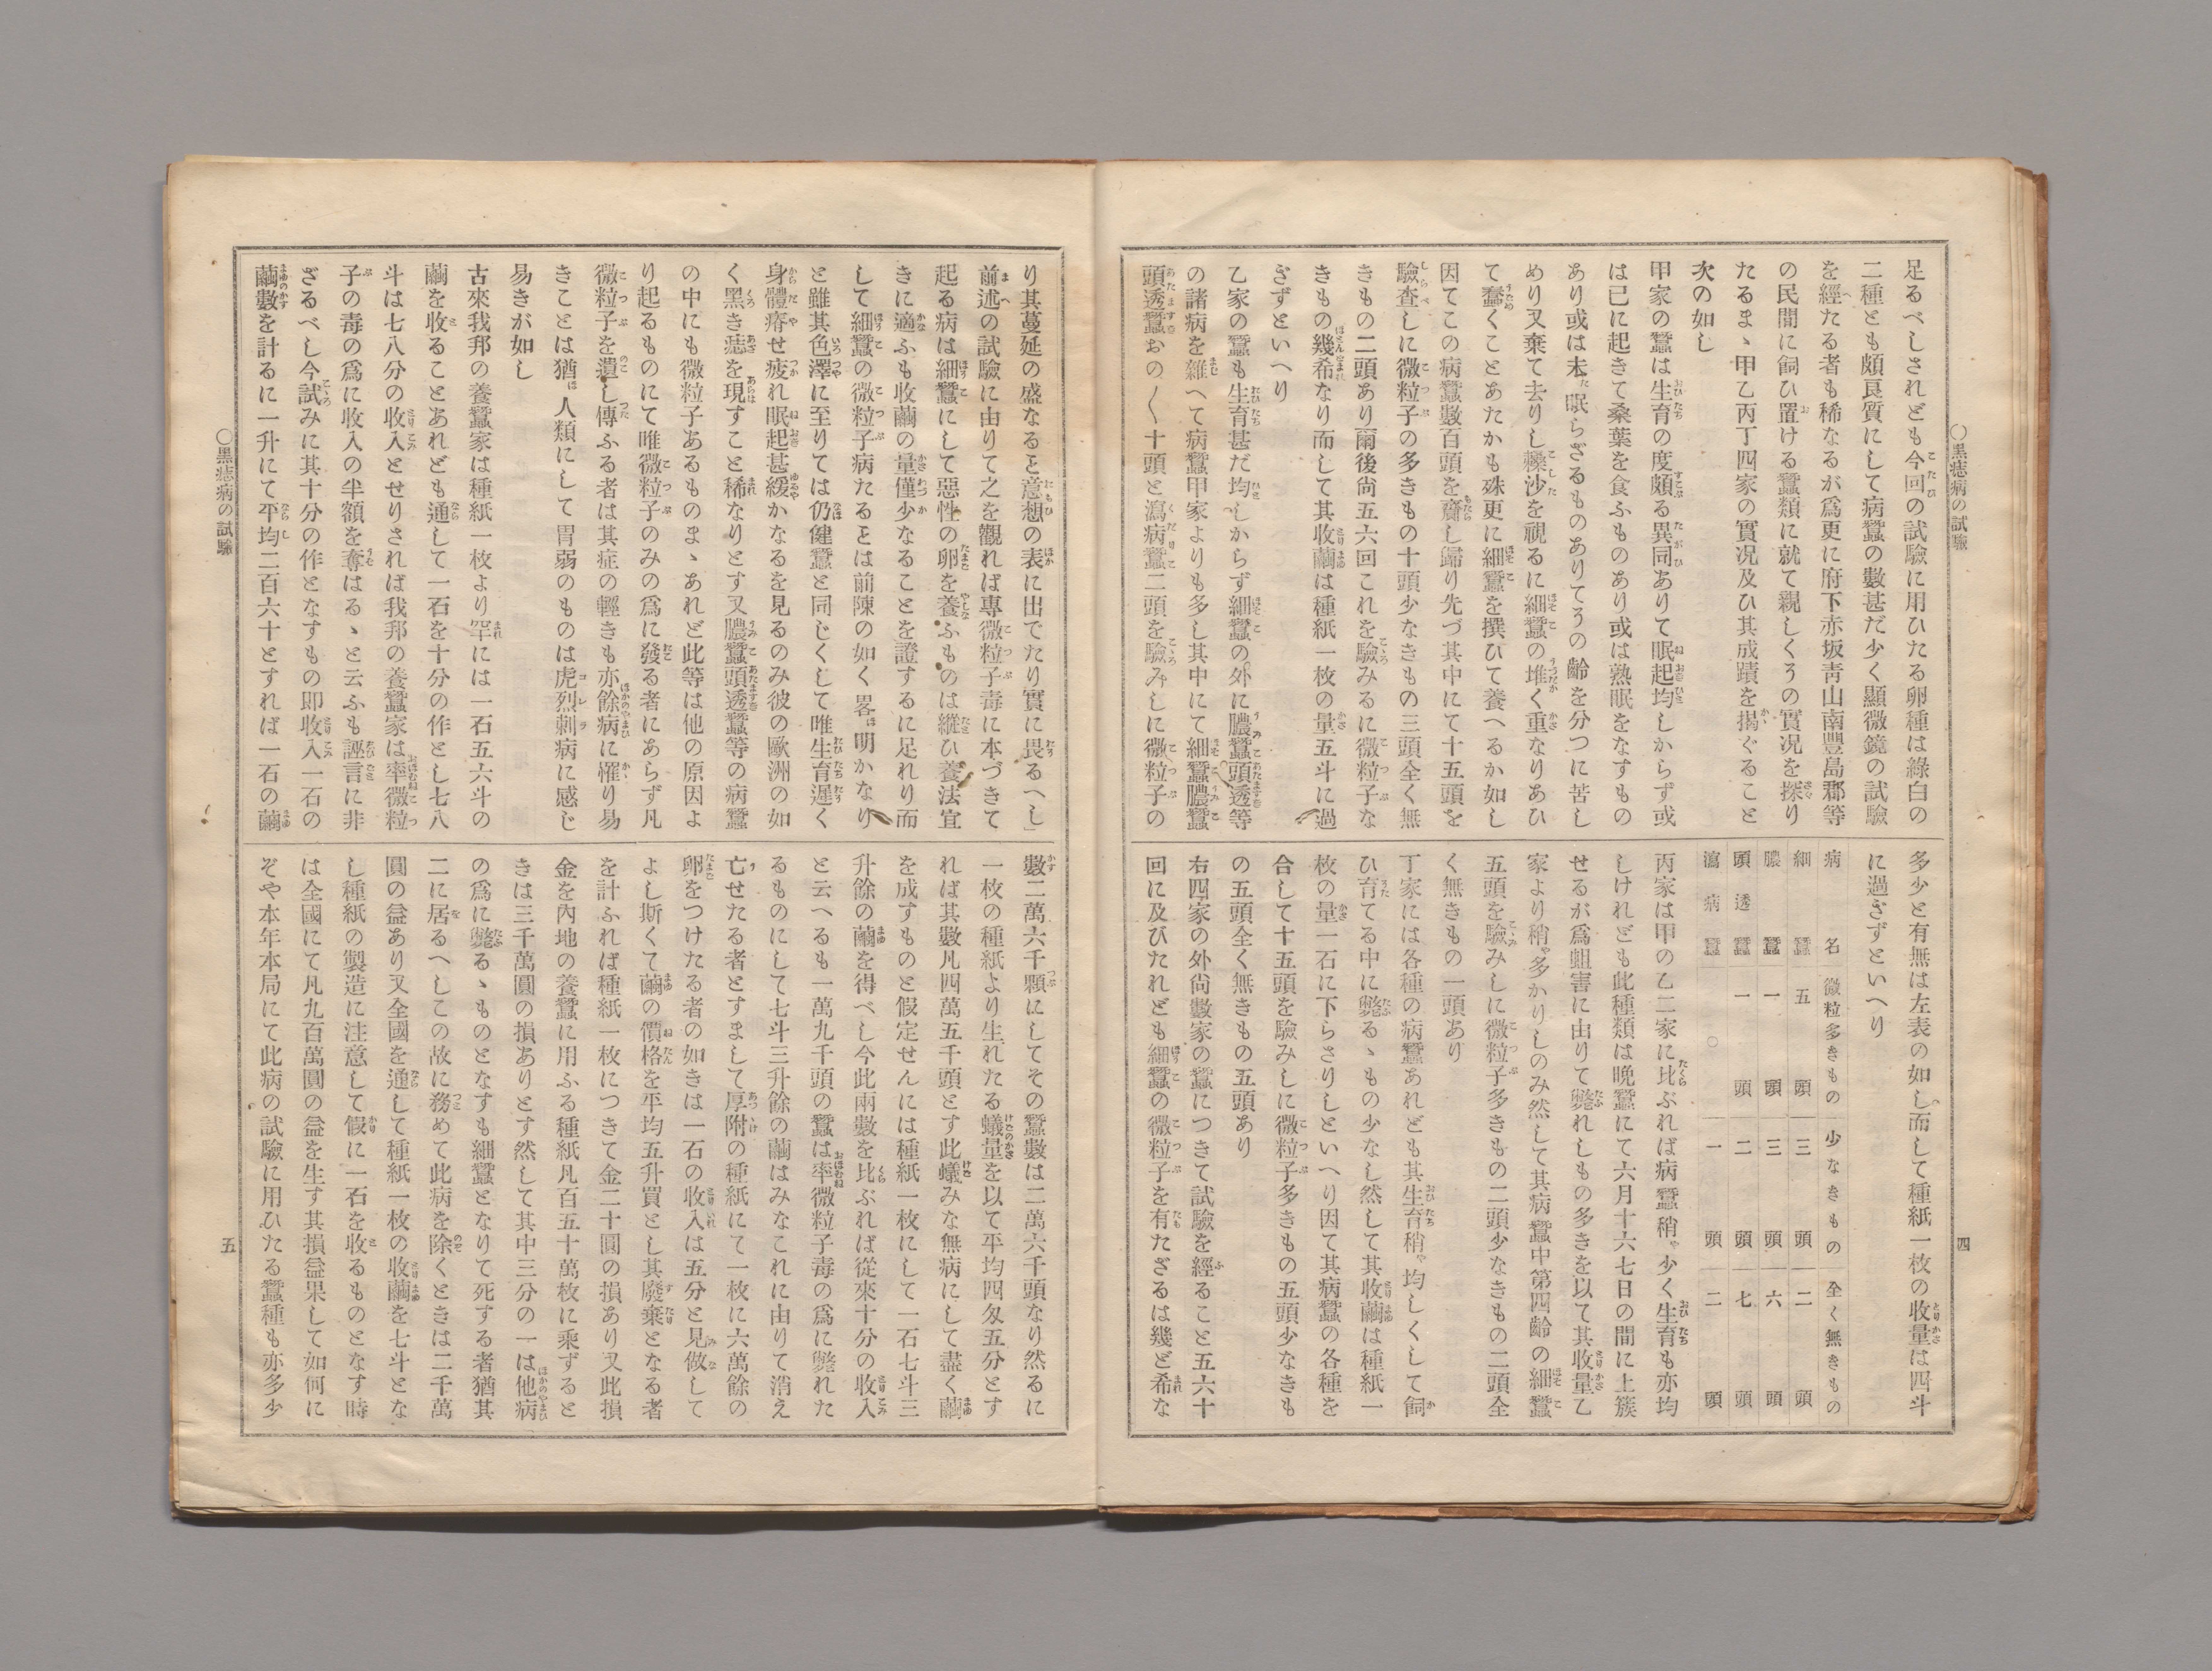 ○黑痣病の試驗
四
足るべしされども今回の試驗に用ひたる卵種は綠白の
二種とも頗良質にして病蠶の數甚だ少く顯微鏡の試驗
を經たる者も稀なるが爲更に府下赤坂靑山南豐島郡等
の民間に飼ひ置ける蠶類に就て親しくその實況を探り
たるまゝ甲乙丙丁四家の實况及ひ其成蹟を揭ぐること
次の如し
甲家の蠶は生育の度頗る異同ありて眠起均しからず或
は已に起きて桑葉を食ふものあり或は熟眠をなすもの
あり或は未眠らざるものありてその齡を分つに苦し
めり又棄て去りし沙を視るに細蠶の堆く重なりあひ
て蠢くことあたかも殊更に細蠶を撰びて養へるか如し
因てこの病蠶數百頭を齎し歸り先づ其中にて十五頭を
驗查しに微粒子の多きもの十頭少なきもの三頭全く無
きもの二頭あり爾後尙五六回これを驗みるに微粒子な
きもの幾希なり而して其收繭は種紙一枚の量五斗に過
ぎずといへり
乙家の蠶も生育甚だ均しからず細蠶の外に膿蠶頭透等
の諸病を雜へて病蠶甲家よりも多し其中にて細蠶膿蠶
頭透蠶おの〱十頭と瀉病蠶二頭を驗みしに微粒子の
多少と有無は左表の如し而して種紙一枚の收量は四斗
に過ぎずといへり
病名 微粒多きもの 少なきもの 全く無きもの
細蠶 五頭 三頭 二頭
膿蠶 一頭 三頭 六頭
頭透蠶 一頭 二頭 七頭
瀉病蠶 〇 一頭 二頭
丙家は甲の乙二家に比ぶれば病蠶稍少く生育も亦均
しけれども此種類は晚蠶にて六月十六七日の間に上簇
せるが爲蛆害に由りて斃れしもの多きを以て其收量乙
家より稍多かりしのみ然して其病蠶中第四齡の細蠶
五頭を驗みしに微粒子多きもの二頭少なきもの二頭全
く無きもの一頭あり
丁家には各種の病蠶あれども其生育稍均しくして飼
ひ育てる中に斃るゝもの少なし然して其收繭は種紙一
枚の量一石に下らさりしといへり因て其病蠶の各種を
合して十五頭を驗みしに微粒子多きもの五頭少なきも
の五頭全く無きもの五頭あり
右四家の外尙數家の蠶につきて試驗を經ること五六十
回に及びたれども細蠶の微粒子を有たざるは幾ど希な
り其蔓延の盛なると意想の表に出でたり實に畏るへし
前述の試驗に由りて之を觀れば專微粒子毒に本づきて
起る病は細蠶にして惡性の卵を養ふものは縱ひ養法宜
きに適ふも收繭の量僅少なることを證するに足れり而
して細蠶の微粒子病たるとは前陳の如く畧明かなり
と雖其色澤に至りては仍健蠶と同じくして唯生育遲く
身體瘠せ疲れ眠起甚緩かなるを見るのみ彼の歐洲の如
く黑き痣を現すこと稀なりとす又膿蠶頭透蠶等の病蠶
の中にも微粒子あるものまゝあれど此等は他の原因よ
り起るものにて唯微粒子のみの爲に發る者にあらず凡
微粒子を遺し傳ふる者は其症の輕きも亦餘病に罹り易
きことは猶人類にして胃弱のものは虎烈剌病に感じ
易きが如し
古來我邦の養蠶家は種紙一枚より罕には一石五六斗の
繭を收ることあれども通して一石を十分の作とし七八
斗は七八分の收入とせりされば我邦の養蠶家は率微粒
子の毒の爲に收入の半額を奪はるゝと云ふも誣言に非
ざるべし今試みに其十分の作となすもの即收入一石の
繭數を計るに一升にて平均二百六十とすれば一石の繭
數二萬六千顆にしてその蠶數は二萬六千頭なり然るに
一枚の種紙より生れたる蟻量を以て平均四匁五分とす
れば其數凡四萬五千頭とす此蟻みな無病にして盡く繭
を成すものと假定せんには種紙一枚にして一石七斗三
升餘の繭を得べし今此兩數を比ぶれば從來十分の收入
と云へるも一萬九千頭の蠶は率微粒子毒の爲に斃れた
るものにして七斗三升餘の繭はみなこれに由りて消え
亡せたる者とすまして厚附の種紙にて一枚に六萬餘の
卵をつけたる者の如きは一石の收入は五分と見做して
よし斯くて繭の價格を平均五升買とし其廢棄となる者
を計ふれば種紙一枚につきて金二十圓の損あり又此損
金を內地の養蠶に用ふる種紙凡百五十萬枚に乘ずると
きは三千萬圓の損ありとす然して其中三分の一は他病
の爲に斃るゝものとなすも細蠶となりて死する者猶其
二に居るへしこの故に務めて此病を除くときは二千萬
圓の益あり又全國を通して種紙一枚の收繭を七斗とな
し種紙の製造に注意して假に一石を收るものとなす時
は全國にて凡九百萬圓の益を生す其損益果して如何に
ぞや本年本局にて此病の試驗に用ひたる蠶種も亦多少
○黑痣病の試驗
五